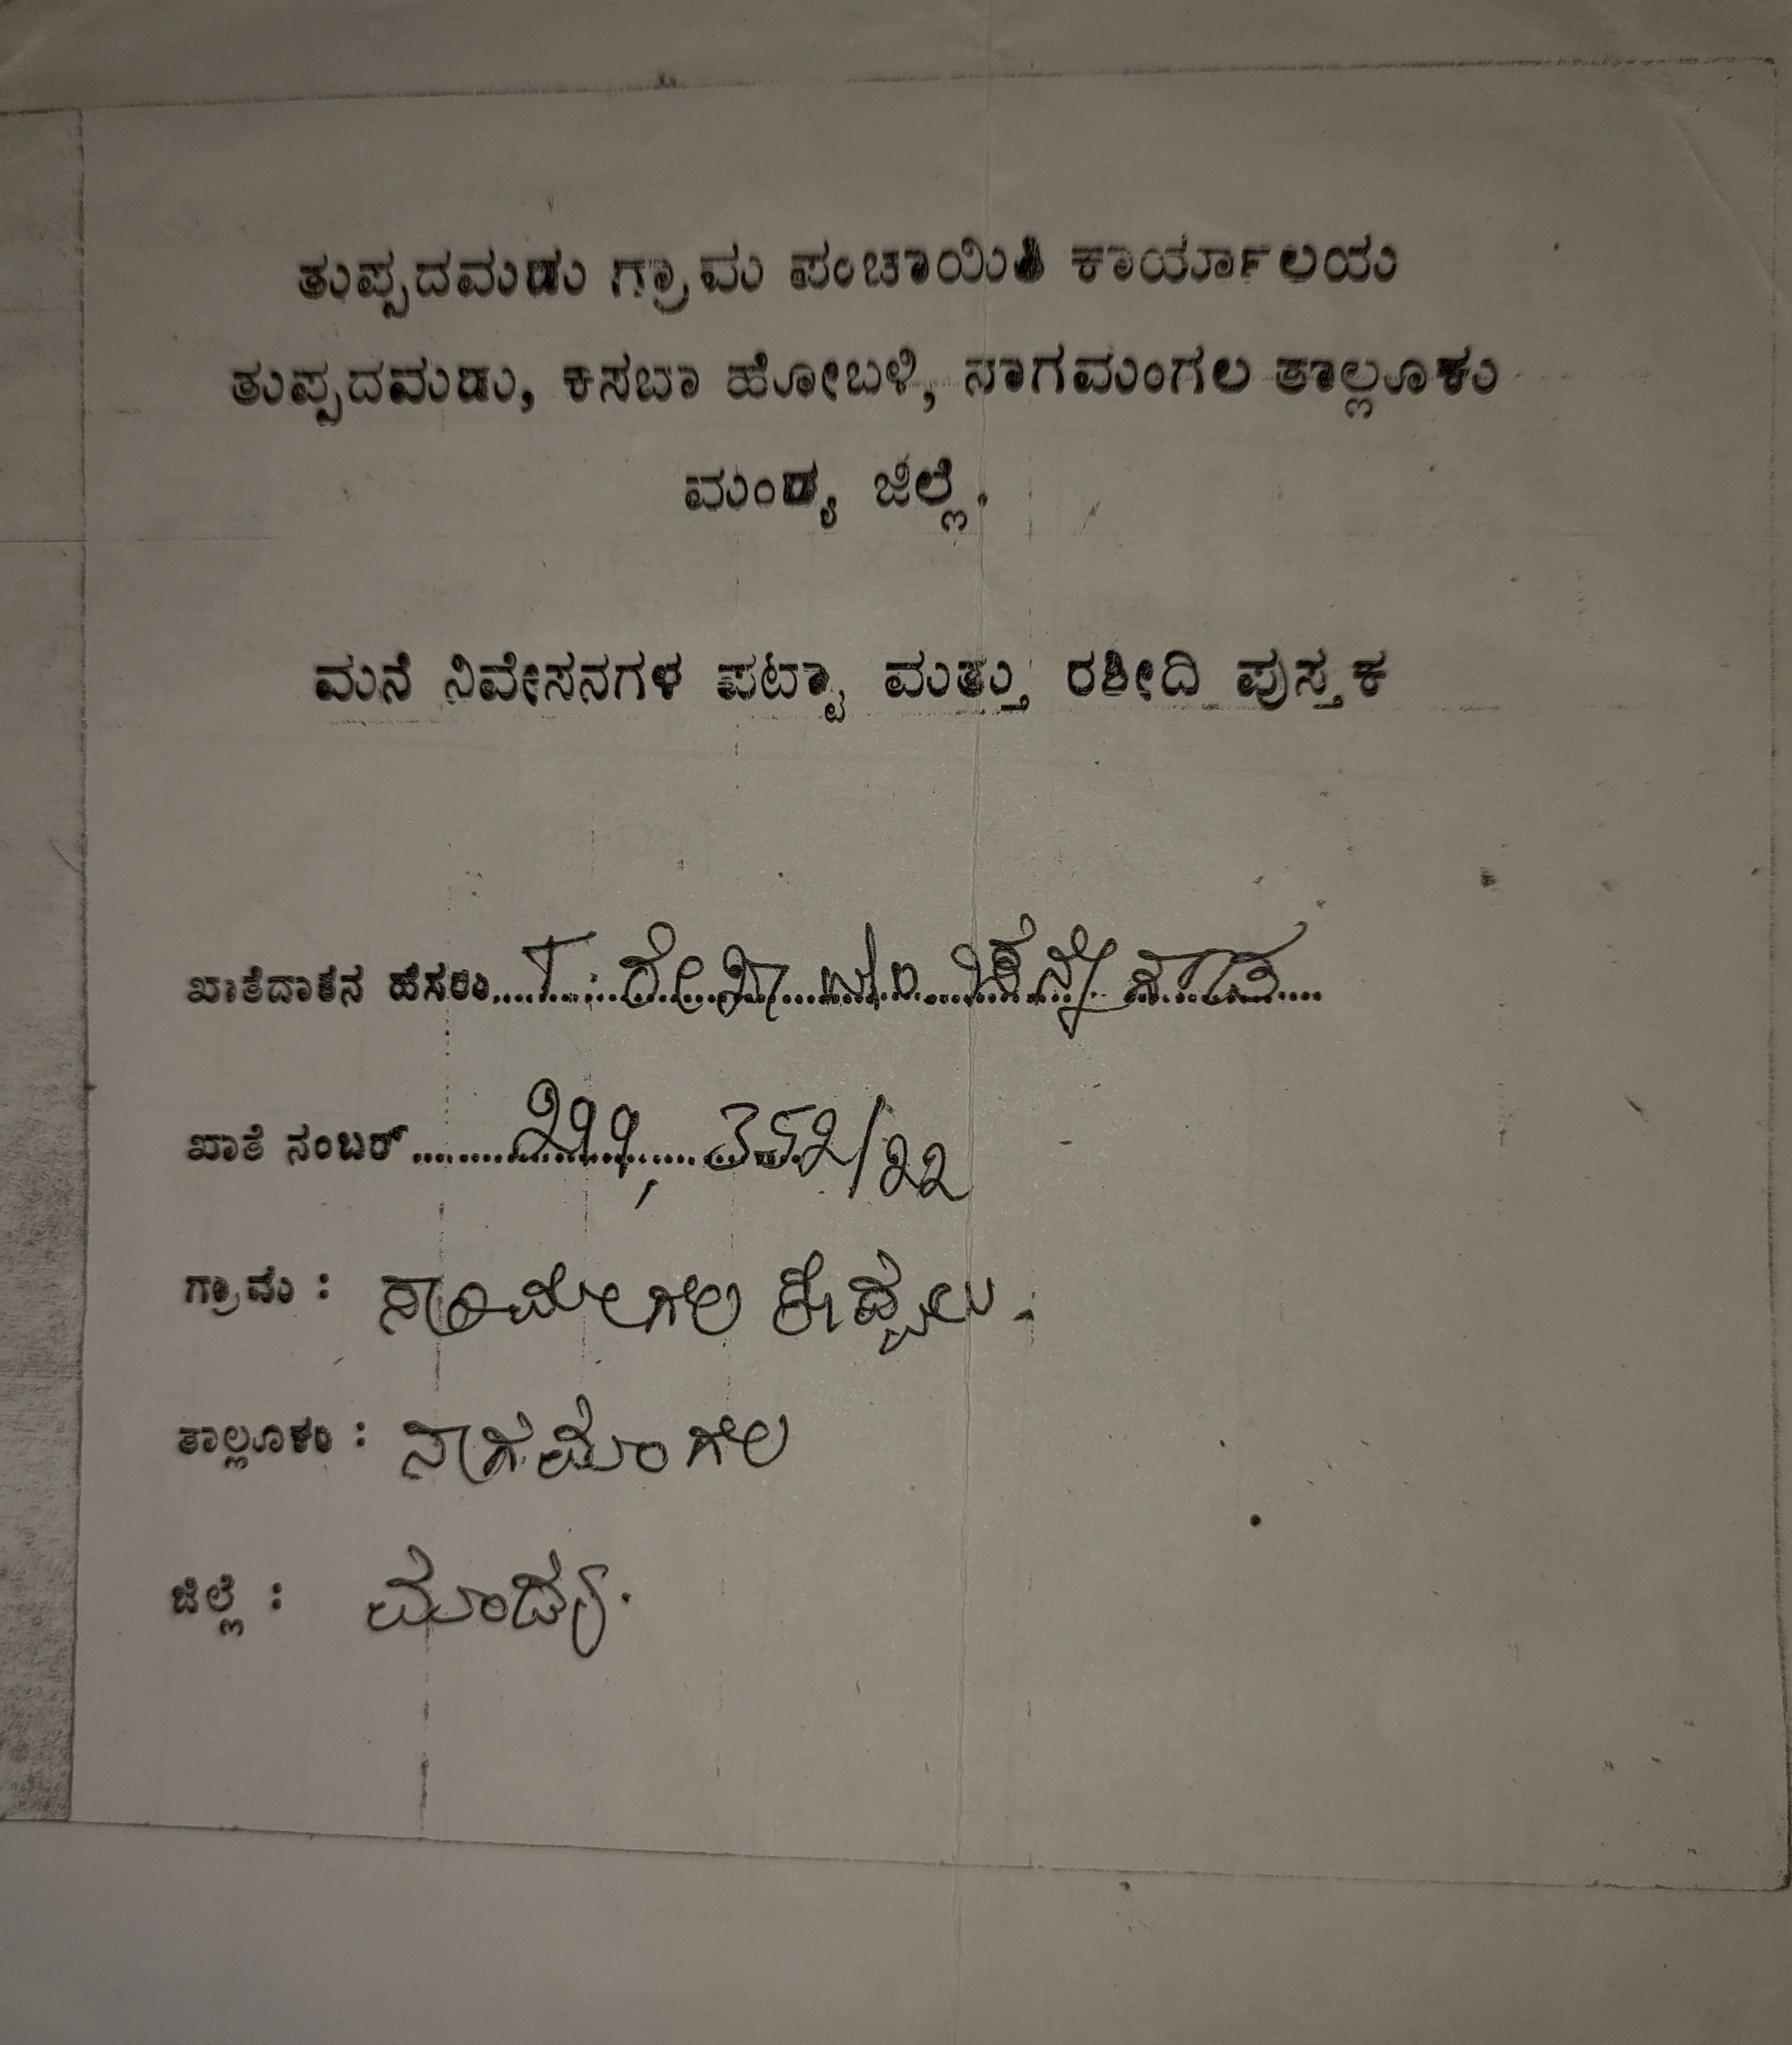 ತುಪ್ಪದಮಡು ಗ್ರಾಮ ಪಂಚಾಯಿತಿ ಕಾರ್ಯಾಲಯ
ತುಪ್ಪದಮಡು, ಕಸಬಾ ಹೋಬಳಿ, ನಾಗಮಂಗಲ ತಾಲ್ಲೂಕು
ಮಂಡ್ಯ ಜಿಲ್ಲೆ.
ಮನೆ ನಿವೇಸನಗಳ ಪಟ್ಟಾ ಮತ್ತು ರಶೀದಿ ಪುಸ್ತಕ
ಖಾತೆದಾರನ ಹೆಸರು
ಖಾತೆ ನಂಬರ್
ಗ್ರಾಮ :
ತಾಲ್ಲೂಕು : ನಾಗಮಂಗಲ
ಜಿಲ್ಲೆ : ಮಂಡ್ಯ.